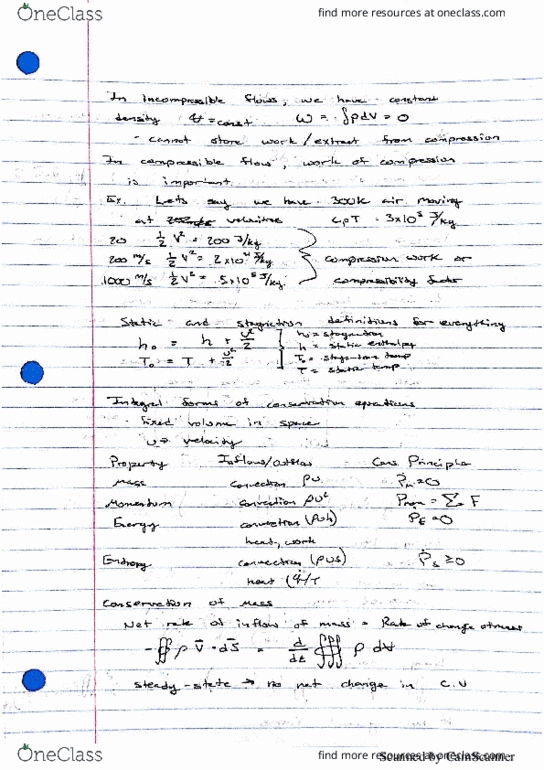 OneClass
find more resources at oneclass.com
In incompressible flows, we have constant
density = const w = ∫pdV = 0
- cannot store work/extract from compression
In compressible flow, work of compression
is important.
Ex. Lets say we have 300K air moving
at velocities CpT = 3x10⁵ J/kg
20 ½V² = 200 J/kg
200 m/s ½V² = 2x10⁴ J/kg compression work or
1000 m/s ½V² = 5x10⁵ J/kg compressibility factor
Static and stagnation definitions for everything
h₀ = h + U²/2 h₀ = stagnation
h = static enthalpy
T₀ = T + U²/2 T₀ = temp
T = static temp
Integral forms of conservation equations
- fixed volume in space
u → velocity
Property Inflows/outflows Cons Principle
Mass convection ρu Pm=0
Momentum convection ρu² Pmom = Σ F
Energy convection (ρuh) PE=0
heat, work
Entropy convection (ρus) Ps ≥0
heat (q/T
Conservation of mass
Net rate of inflow of mass = Rate of change of mass
-∯ρ V̄ · dS̄ = d/dt ∭ ρ dV
steady-state → no net change in C.V
OneClass
find more resources at oneclass.com
Scanned by CamScanner